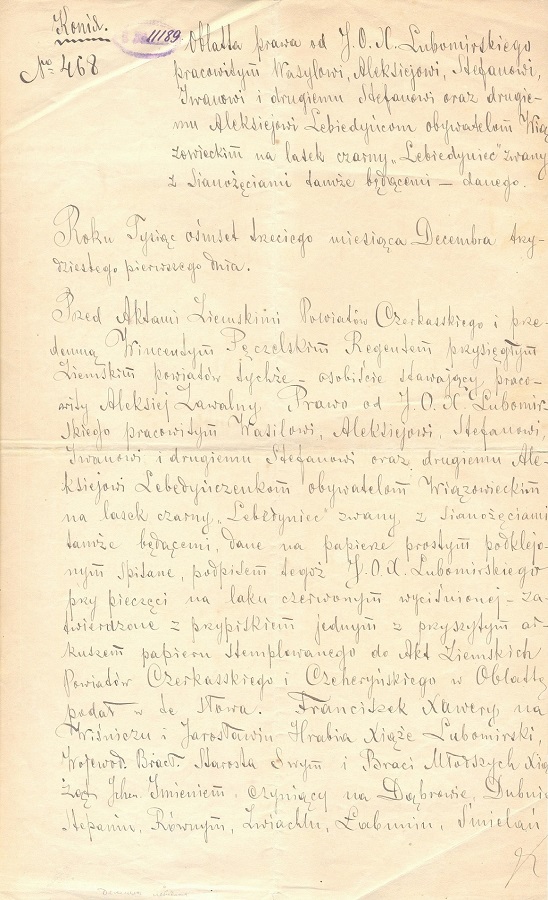 Konid.
11189
№ 468
Oblatta prawa od J. O. X. Lubomirskiego
pracowitym Wasylowi, Aleksiejowi, Stefanowi,
Iwanowi i drugiemu Stefanowi oraz drugie-
mu Aleksiejowi Lebiedyńcom obywatelom Wią
zowieckim na lasek czarny „Lebiedyniec” zwany
z sianożęciami tamże będącemi — danego.
Roku Tysiąc ośmset trzeciego miesiąca Decembra trzy-
dziestego pierwszego dnia.
Przed Aktami Ziemskiemi Powiatów Czerkasskiego i prze-
demną Wincentym Pęczelskim Regentem przysięgłym
Ziemskim powiatów tychże – osobiście stawający praco-
wity Aleksiej Zawalny Prawo od J. O. X. Lubomir-
skiego pracowitym Wasilowi, Aleksiejowi, Stefanowi,
Iwanowi i drugiemu Stefanowi oraz drugiemu Ale-
ksiejowi Lebedyńczenkom obywatelom Wiązowieckim
na lasek czarny „Lebedyniec” zwany z sianożęciami
tamże będącemi, dane na papierze prostym podklejo-
nym spisane, podpisem tegoż J. O. X. Lubomirskiego
przy pieczęci na laku czerwonym wyciśnionej – za-
twierdzone z przypiskiem jednym z przyszytym ar-
kuszem papieru stemplowanego do Akt Ziemskich
Powiatów Czerkasskiego i Czeheryńskiego w Oblattę
podał w te słowa. Franciszek Xawery na
Wiśniczu i Jarosławiu Hrabia Xiąże Lubomirski,
Wojewod. Bracł. Starosta Swym i Braci Młodszych Xią
żąt Ichm. Imieniem czyniący na Dąbrowie, Dubnie
Stepaniu, Równym, Zwiachlu, Łabuniu, Śmielań